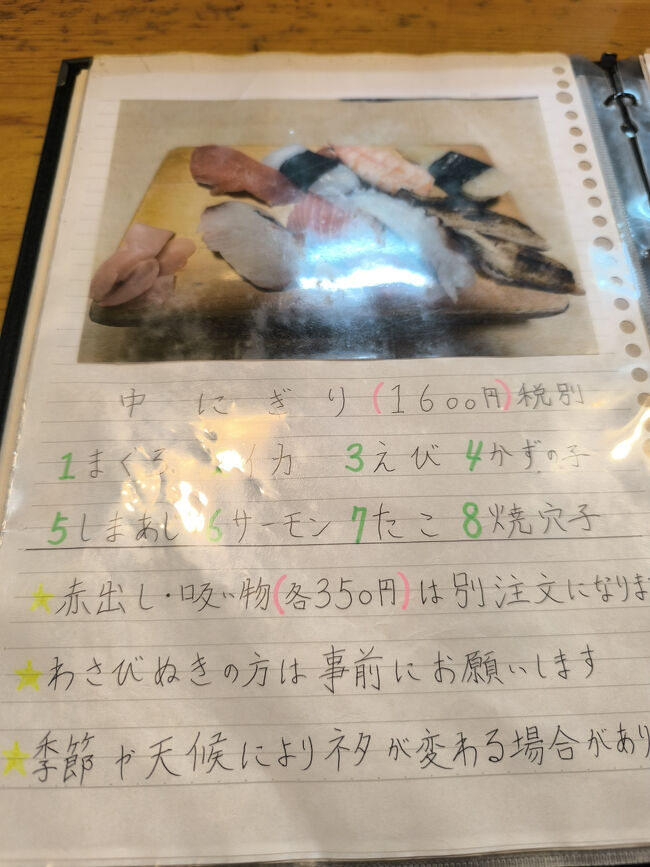 中にぎり(1600円)税別
1まぐろ イカ 3えび 4かずの子
5しまあじ 6サーモン 7たこ 8焼穴子
★赤出し・吸い物(各350円)は別注文になりま
★わさびぬきの方は事前にお願いします
★季節や天候によりネタが変わる場合があり